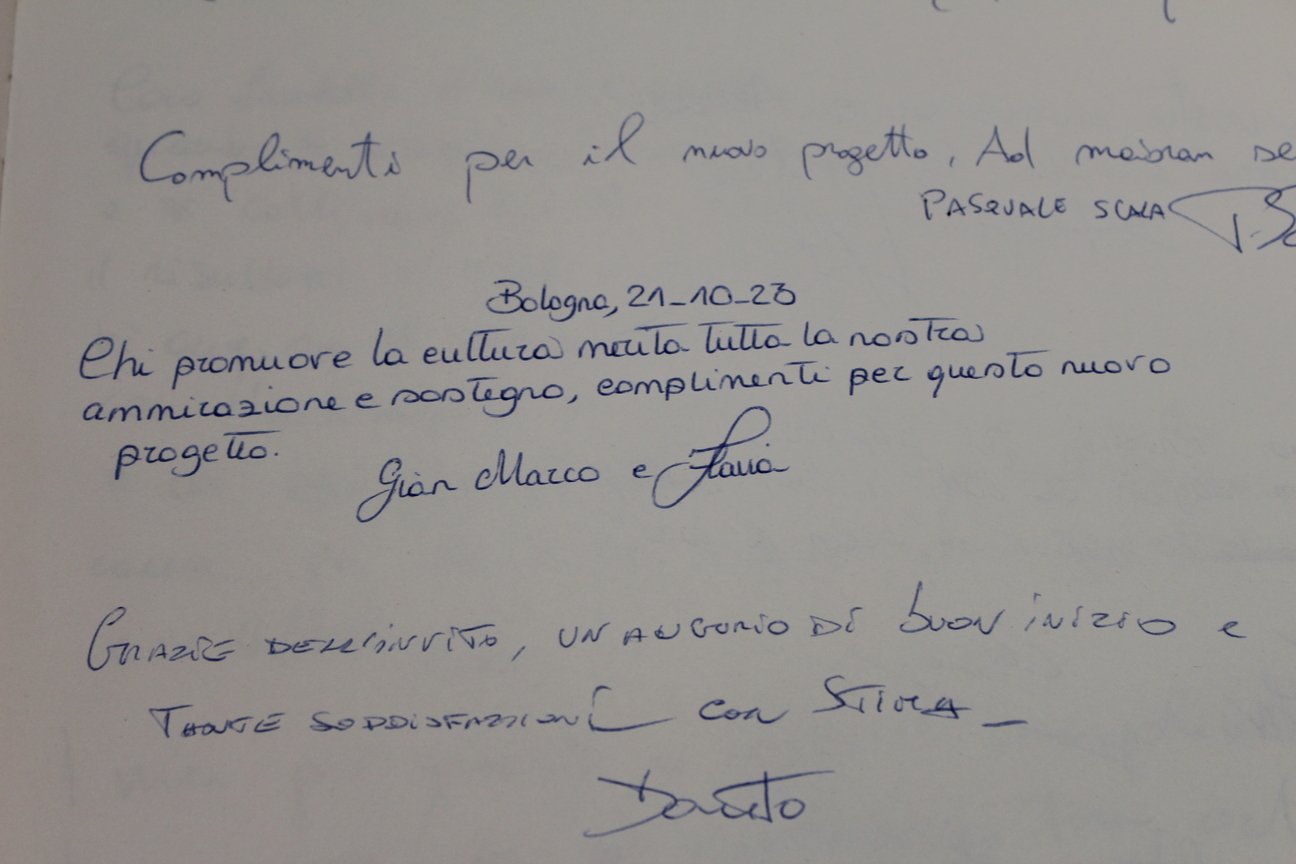 Complimenti per il nuovo progetto. Ad maioran se
PASQUALE SCALA
Bologna, 21-10-23
Chi promuove la cultura merita tutta la nostra
ammirazione e sostegno, complimenti per questo nuovo
progetto.
Gian Marco e Flavia
GRAZIE DELL'INVITO, UN AUGURIO DI BUON INIZIO e
TANTE SODDISFAZIONI con STIMA_
Donato